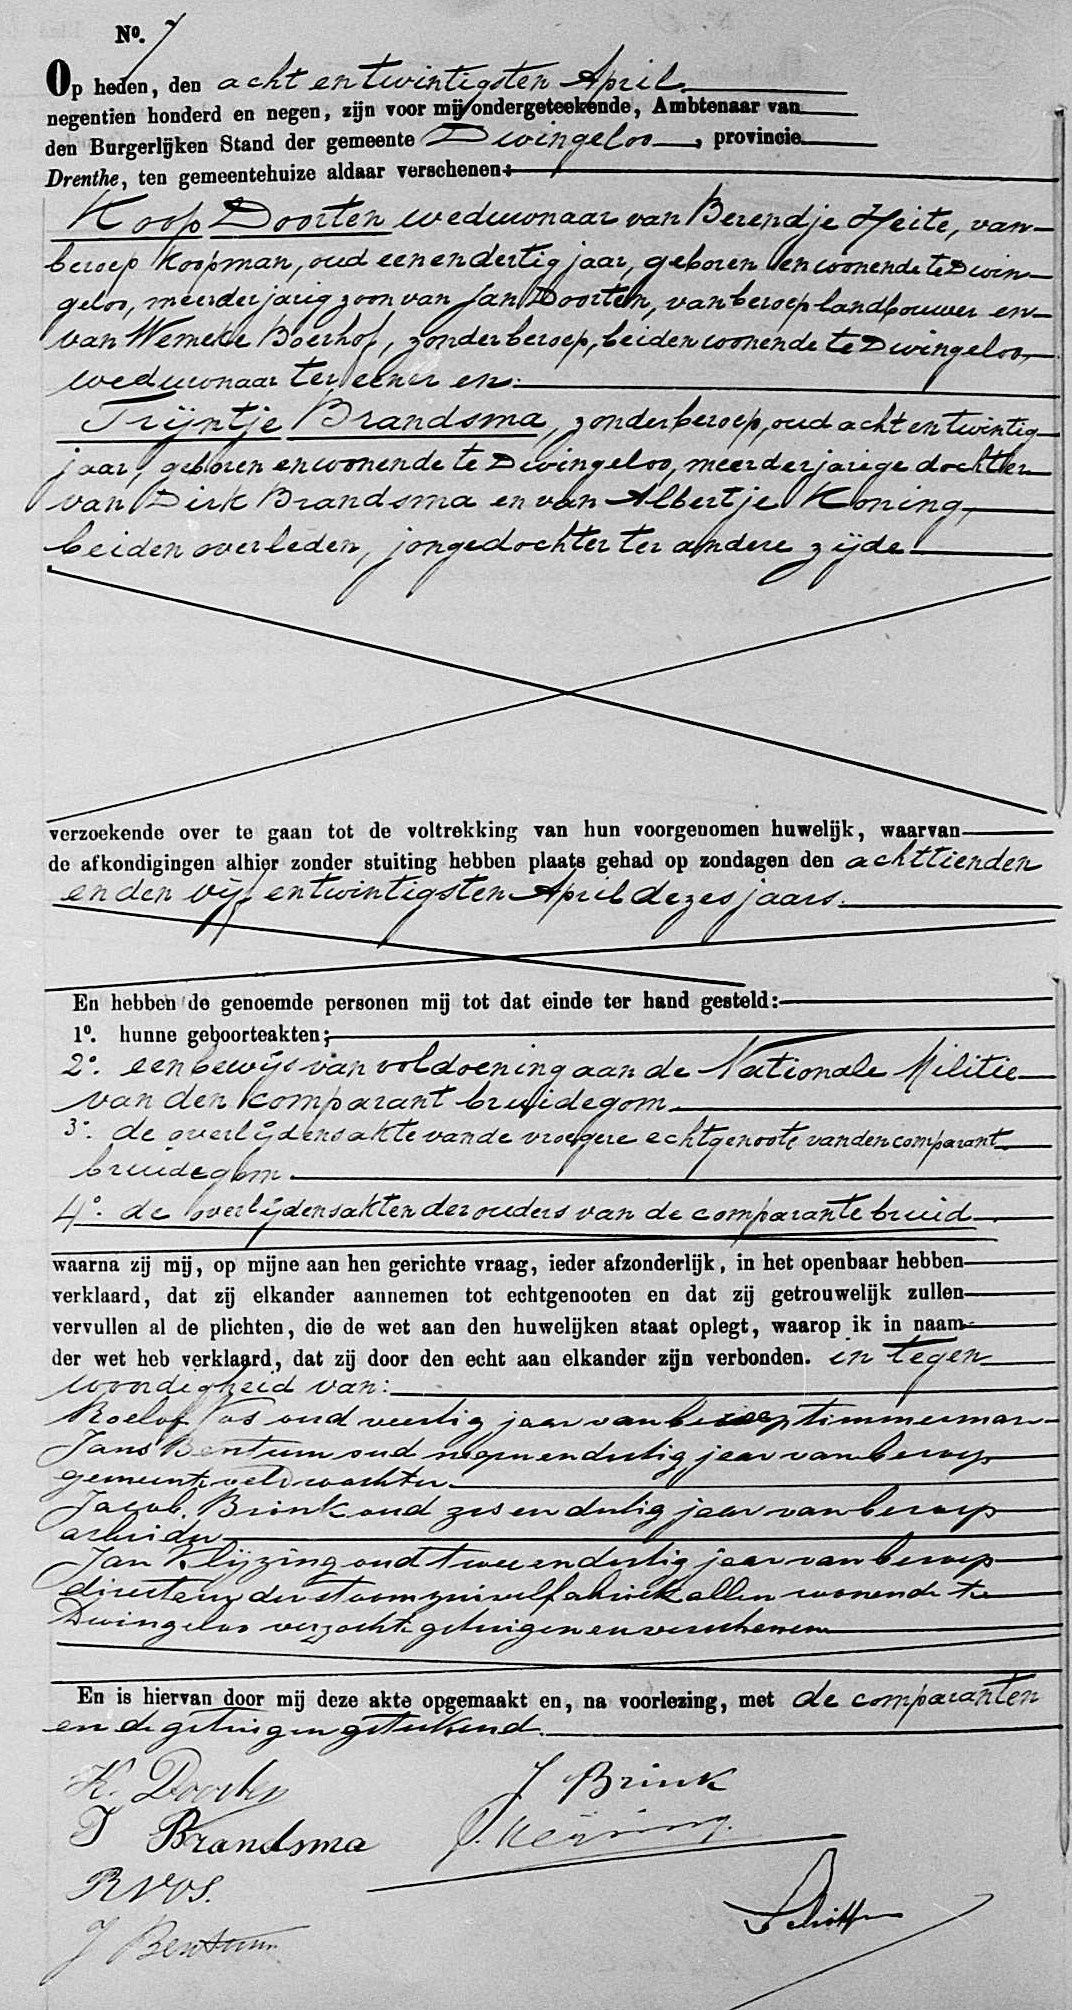 No. 7
Op heden, den acht en twintigsten April
negentien honderd en negen, zijn voor mij ondergeteekende, Ambtenaar van
den Burgerlijken Stand der gemeente Dwingeloo, provincie
Drenthe, ten gemeentehuize aldaar verschenen:
Koop Doorten weduwnaar van Berendje Heite, van
beroep koopman, oud een en dertig jaar, geboren en wonende te Dwin-
geloo, meerderjarig zoon van Jan Doorten, van beroep landbouwer en
van Wemeke Boerhof, zonder beroep, beiden wonende te Dwingeloo,
weduwnaar ter eener en:
Trijntje Brandsma, zonder beroep, oud acht en twintig
jaar, geboren en wonende te Dwingeloo, meerderjarige dochter
van Dirk Brandsma en van Albertje Koning,
beiden overleden, jongedochter ter andere zijde
verzoekende over te gaan tot de voltrekking van hun voorgenomen huwelijk, waarvan
de afkondigingen alhier zonder stuiting hebben plaats gehad op zondagen den achttienden
en den vijf en twintigsten April dezes jaars.
En hebben de genoemde personen mij tot dat einde ter hand gesteld:
1o. hunne geboorteakten;
2o. een bewijs van voldoening aan de Nationale Militie
van den comparant bruidegom
3o. de overlijdensakte van de vroegere echtgenoote van den comparant
bruidegom
4o. de overlijdensakten der ouders van de comparante bruid
waarna zij mij, op mijne aan hen gerichte vraag, ieder afzonderlijk, in het openbaar hebben
verklaard, dat zij elkander aannemen tot echtgenooten en dat zij getrouwelijk zullen
vervullen al de plichten, die de wet aan den huwelijken staat oplegt, waarop ik in naam
der wet heb verklaard, dat zij door den echt aan elkander zijn verbonden. in tegen
woordigheid van:
Roelof Vos oud veertig jaar van beroep timmerman
Jans Bentum oud negen en dertig jaar van beroep
gemeente veldwachter
Jacob Brink oud zes en dertig jaar van beroep
arbeider
Jan Kleijzing oud twee en dertig jaar van beroep
directeur der stoomzuivelfabriek allen wonende te
Dwingeloo verzochte getuigen en verschenen
En is hiervan door mij deze akte opgemaakt en, na voorlezing, met de comparanten
en de getuigen geteekend.
K. Doorten
J Brink
T Brandsma
R Vos.
J Bentum